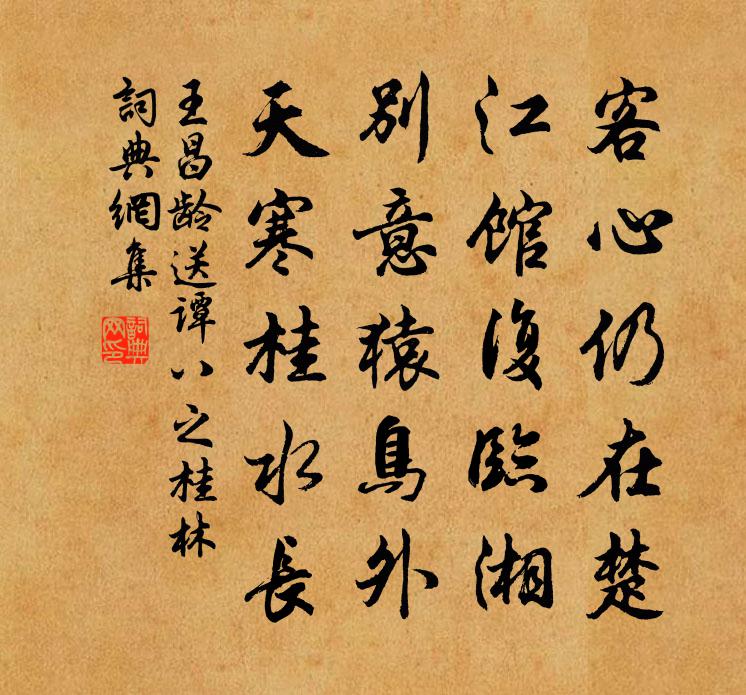 客心仍在楚
江館復臨湘
別意猿鳥外
天寒桂水長
王昌齡送譚八之桂林
詞典網集
詞典網印